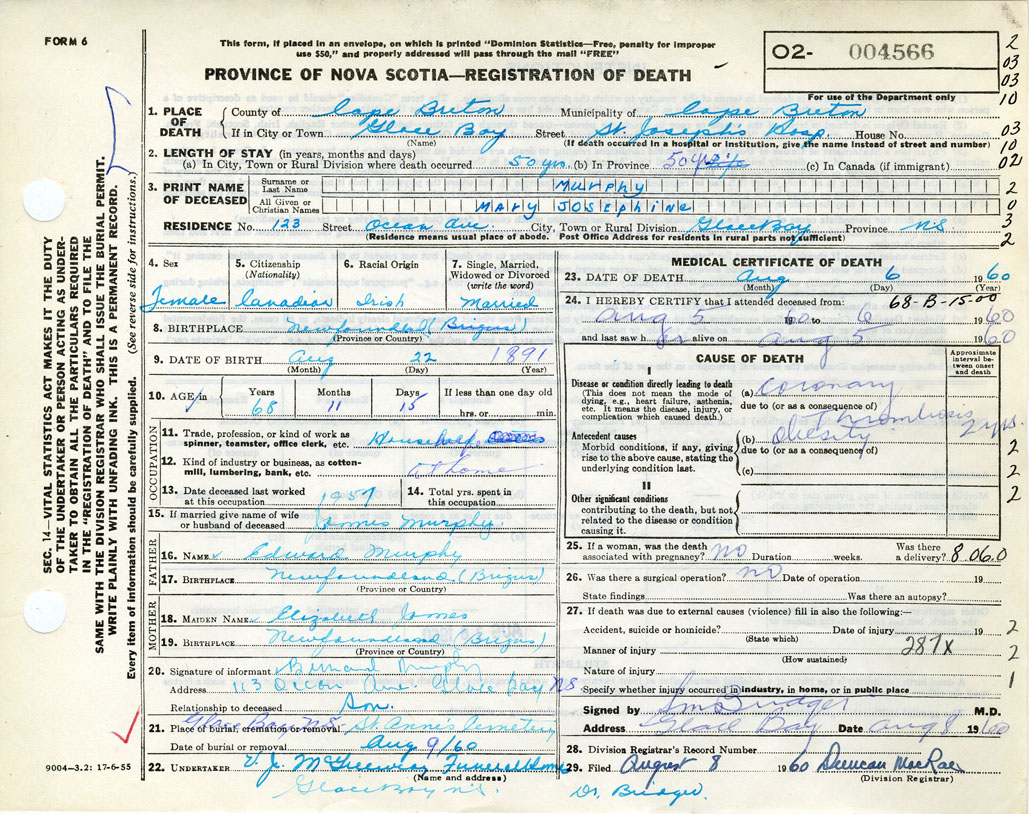 FORM 6
This form, if placed in an envelope, on which is printed "Dominion Statistics—Free, penalty for improper
use $50," and properly addressed will pass through the mail "FREE"
PROVINCE OF NOVA SCOTIA—REGISTRATION OF DEATH
02- 004566
For use of the Department only
2
03
03
10
03
10
021
2
0
3
2
1. PLACE OF DEATH
County of Cape Breton Municipality of Cape Breton
If in City or Town Glace Bay Street St. Joseph's Hosp. House No.
(Name) (If death occurred in a hospital or institution, give the name instead of street and number)
2. LENGTH OF STAY (in years, months and days)
(a) In City, Town or Rural Division where death occurred 50 yrs. (b) In Province 50 yrs (c) In Canada (if immigrant)
3. PRINT NAME OF DECEASED
Surname or Last Name MURPHY
All Given or Christian Names MARY JOSEPHINE
RESIDENCE No. 123 Street Ocean Ave. City, Town or Rural Division Glace Bay Province N.S.
(Residence means usual place of abode. Post Office Address for residents in rural parts not sufficient)
4. Sex
Female
5. Citizenship
(Nationality)
Canadian
6. Racial Origin
Irish
7. Single, Married,
Widowed or Divorced
(write the word)
Married
8. BIRTHPLACE Newfoundland (Brigus)
(Province or Country)
9. DATE OF BIRTH Aug 22 1891
(Month) (Day) (Year)
10. AGE
Years Months Days If less than one day
68 11 15 hrs. or min.
OCCUPATION
11. Trade, profession, or kind of work as
spinner, teamster, office clerk, etc. Household
12. Kind of industry or business, as cotton-
mill, lumbering, bank, etc. at home
13. Date deceased last worked
at this occupation 1957
14. Total yrs. spent in
this occupation
15. If married give name of wife
or husband of deceased James Murphy
FATHER
16. NAME Edward Murphy
17. BIRTHPLACE Newfoundland (Brigus)
(Province or Country)
MOTHER
18. MAIDEN NAME Elizabeth James
19. BIRTHPLACE Newfoundland (Brigus)
(Province or Country)
20. Signature of informant Bernard Murphy
Address 113 Ocean Ave. Glace Bay NS
Relationship to deceased Son.
Glace Bay N.S.
21. Place of burial, cremation or removal St. Anne's Cemetery
Date of burial or removal Aug 9/60
22. UNDERTAKER V. J. McGillivray Funeral Home
(Name and address)
Glace Bay N.S.
9004—3.2: 17-6-55
MEDICAL CERTIFICATE OF DEATH
23. DATE OF DEATH Aug 6 1960
(Month) (Day) (Year)
24. I HEREBY CERTIFY that I attended deceased from: 68-B-15-00
Aug 5 1960 to 6 1960
and last saw her alive on Aug 5 1960
CAUSE OF DEATH
Approximate interval between onset and death
I
Disease or condition directly leading to death
(This does not mean the mode of
dying, e.g., heart failure, asthenia,
etc. It means the disease, injury, or
complication which caused death.)
(a) Coronary
due to (or as a consequence of)
Thrombosis 2 yrs.
Antecedent causes
Morbid conditions, if any, giving
rise to the above cause, stating the
underlying condition last.
(b) Obesity
due to (or as a consequence of)
(c)
II
Other significant conditions
contributing to the death, but not
related to the disease or condition
causing it.
2
2
2
25. If a woman, was the death
associated with pregnancy? no Duration weeks. Was there
a delivery? 8.06.0
26. Was there a surgical operation? no Date of operation 19
State findings Was there an autopsy?
27. If death was due to external causes (violence) fill in also the following:—
Accident, suicide or homicide? Date of injury 19 2
(State which)
Manner of injury 287X 2
(How sustained)
Nature of injury 1
Specify whether injury occurred in industry, in home, or in public place
Signed by Bridger M.D.
Address Glace Bay Date Aug 8 1960
28. Division Registrar's Record Number
29. Filed August 8 1960 Duncan MacRae
(Division Registrar)
Dr. Bridger.
SEC. 14—VITAL STATISTICS ACT MAKES IT THE DUTY
OF THE UNDERTAKER OR PERSON ACTING AS UNDER-
TAKER TO OBTAIN ALL THE PARTICULARS REQUIRED
IN THE "REGISTRATION OF DEATH" AND TO FILE THE
SAME WITH THE DIVISION REGISTRAR WHO SHALL ISSUE THE BURIAL PERMIT.
WRITE PLAINLY WITH UNFADING INK. THIS IS A PERMANENT RECORD.
Every item of information should be carefully supplied. (See reverse side for instructions.)